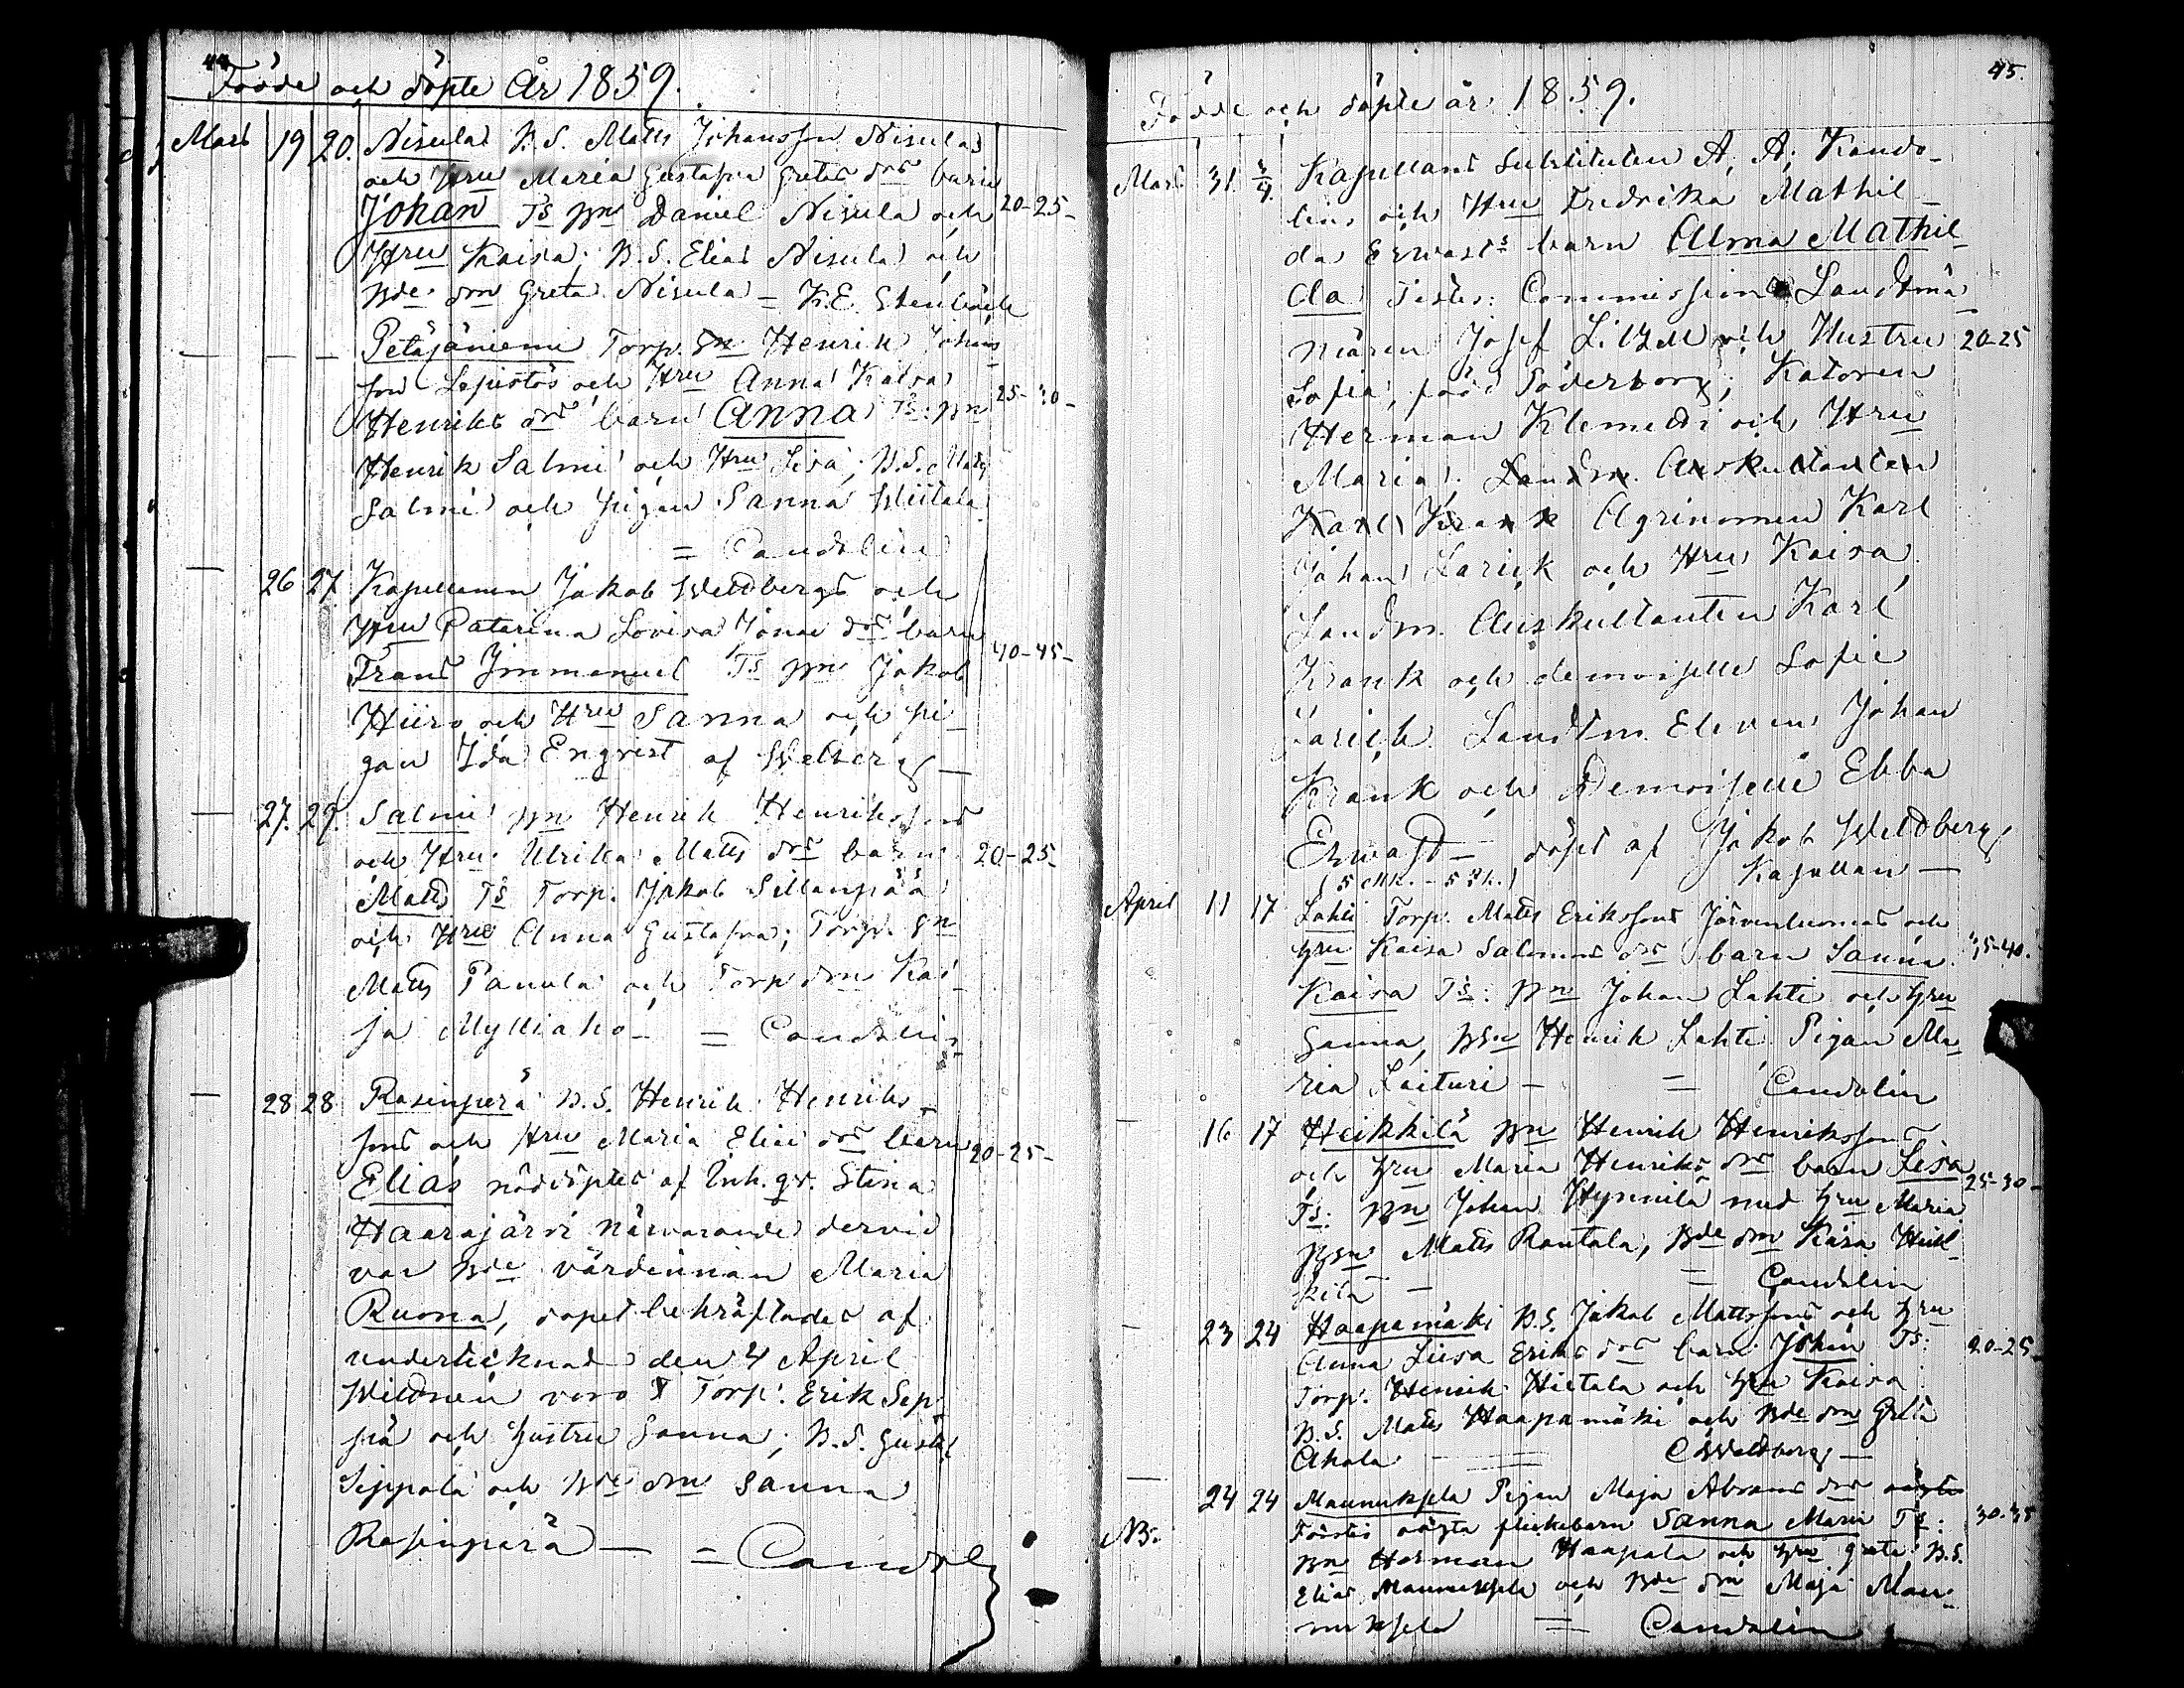 44
Födde och döpte År 1859.
Mars 19 20. Nisula B. S. Matts Johansson Nisulas
och Hru Maria Gustafva Gretas dos barn
Johan Ts Bn Daniel Nisula och 20-25-
Hru Kaisa; B. S. Elias Nisula och
Bde dm Greta Nisula = K. E. Stenbäck
— — — Petäjäniemi Torp. Sn Henrik Johans
son Lepistös och Hru Anna Kaisa
Henriks dos barn Anna Ts: Bn 25-30-
Henrik Salmi och Hru Lisa; B. S. Matts
Salmi och pigan Sanna Wiitala
= Candelin
— 26 27 Kapellanen Jakob Weldbergs och
Hru Catarina Lovisa Jonae dos barn
Frans Immanuel Ts Bn Jakob 40-45-
Hiiro och Hru Sanna och pi
gan Ida Engvist af Welberg —
— 27. 29. Salmi Bn Henrik Henrikssons
och Hru Ulrika Matts dos barn 20-25-
Matts Ts Torp. Jakob Sillanpää
och Hru Anna Gustafva; Torp. Sn
Matts Panula och Torp dm Kai
sa Mylliaho — = Candelin
— 28 28 Rasinperä B. S. Henrik Henriks
sons och Hru Maria Eliæ dos barn 20-25-
Elias nöddöptes af Inh. gr. Stina
Haarajärvi närvarande dervid
var Bde värdinnan Maria
Ruona, dopet bekräftades af
undertecknad den 4 April
Wittnen voro Torp. Erik Sep
pä och hustru Sanna; B. S. Gustaf
Seppälä och Bde dm Sanna
Rasinperä — = Candel
45.
Födde och döpte år 1859.
Mars 31. 3/4 Kapellans Substituten A. A. Kando
lin, och Hru Fredrika Mathil
da Ervasts barn Alma Mathil
da Testes: Commissions Landtmä
mären Josef Litzell och Hustru 20-25
Sofia, född Söderborg; Katoren
Herman Klemetti och Hru
Maria; Landm. Auskultanten
Karl Krank Agrinomen Karl
Johan Larick och Hru Kaisa
Landm. Auskultanten Karl
Krank och demoiselle Sofie
Larick. Landtm. Eleven Johan
Krank och Demoiselle Ebba
Erwast — döpt af Jakob Weldberg
Kapellan —
April 11 17 Lahti Torp. Matts Erikssons Järvenluomas och
Hru Kaisa Salomons dos barn Sanna 35-40.
Kaisa Ts: Bn Johan Lahti och Hru
Sanna, BSn Henrik Lahti Pigan Ma
ria Laituri — = Candelin
— 16 17 Heikkilä Bn Henrik Henrikssons
och Hru Maria Henriks dos barn Lisa 25-30-
Ts: Bn Johan Hynnilä med Hru Maria
BSn Matts Rantala, Bde dm Kaisa Heik
kilä — = Candelin
— 23 24 Haapamäki B. S. Jakob Mattssons och Hru
Anna Liisa Eriks dos barn Johan Ts: 20-25-
Torp. Henrik Hietala och Hru Kaisa
B. S. Matts Haapamäki och Bde dm Greta
Ahola = Weldberg —
— 24 24 Maunuksela Pigan Maja Abrams dos oägta
NB. Första oägta flickebarn Sanna Maria Ts: 30-35
Bn Herman Haapala och Hru Greta, B. S.
Elias Maunuksela och Bde dm Maja Mau
nuksela = Candelin